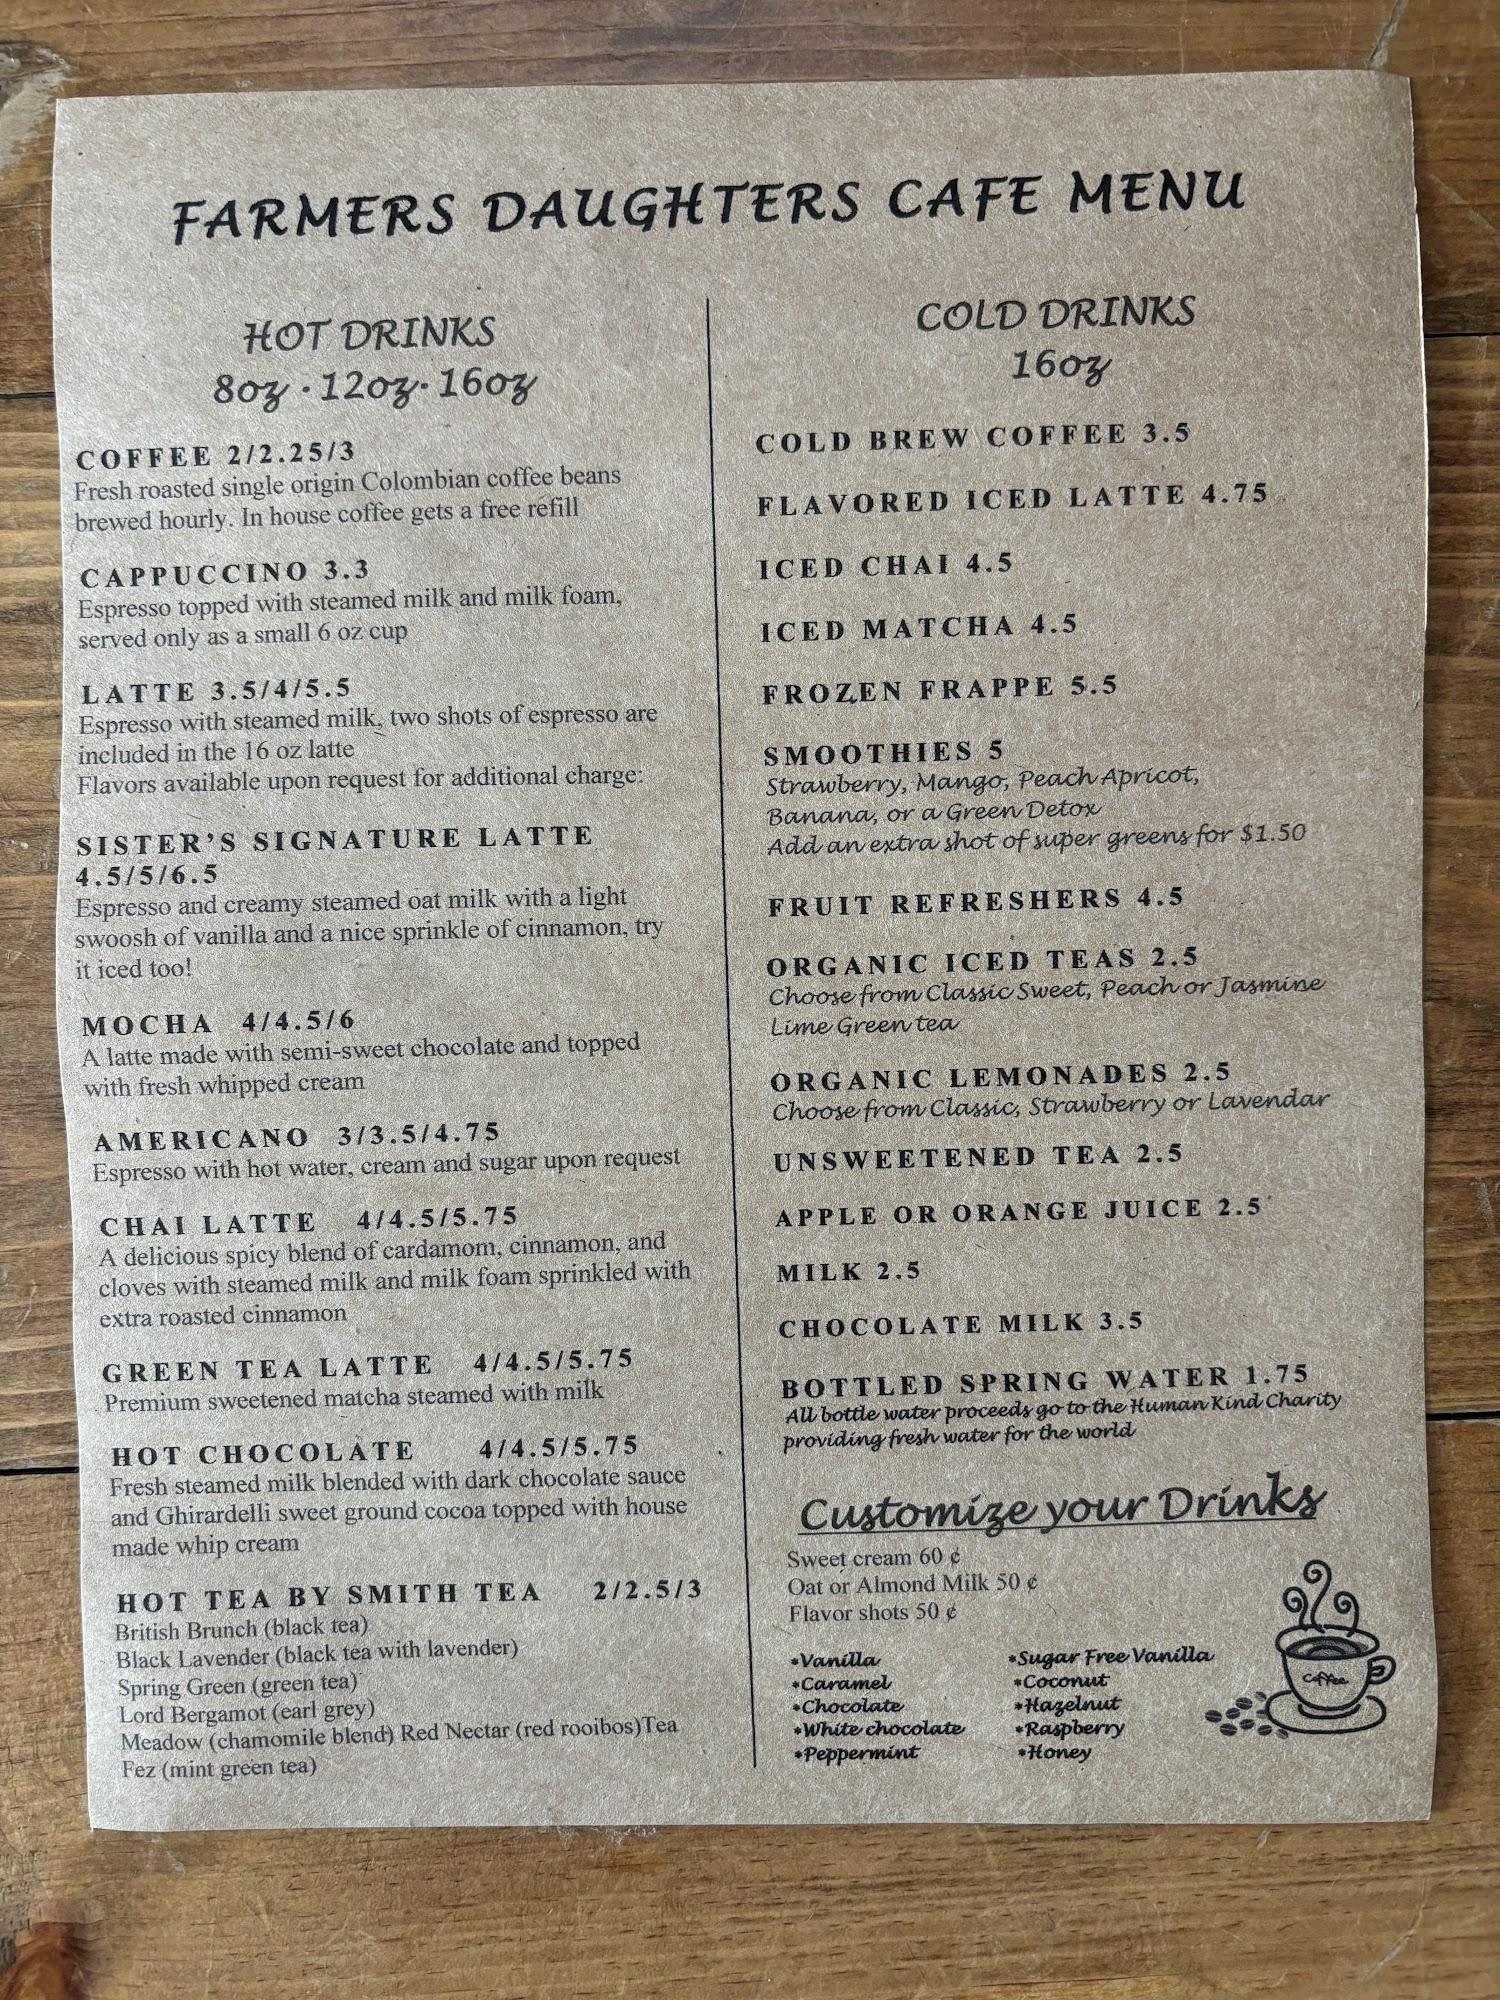 FARMERS DAUGHTERS CAFE MENU
HOT DRINKS
8oz · 12oz · 16oz
COFFEE 2/2.25/3
Fresh roasted single origin Colombian coffee beans
brewed hourly. In house coffee gets a free refill
CAPPUCCINO 3.3
Espresso topped with steamed milk and milk foam,
served only as a small 6 oz cup
LATTE 3.5/4/5.5
Espresso with steamed milk, two shots of espresso are
included in the 16 oz latte
Flavors available upon request for additional charge:
SISTER'S SIGNATURE LATTE
4.5/5/6.5
Espresso and creamy steamed oat milk with a light
swoosh of vanilla and a nice sprinkle of cinnamon, try
it iced too!
MOCHA 4/4.5/6
A latte made with semi-sweet chocolate and topped
with fresh whipped cream
AMERICANO 3/3.5/4.75
Espresso with hot water, cream and sugar upon request
CHAI LATTE 4/4.5/5.75
A delicious spicy blend of cardamom, cinnamon, and
cloves with steamed milk and milk foam sprinkled with
extra roasted cinnamon
GREEN TEA LATTE 4/4.5/5.75
Premium sweetened matcha steamed with milk
HOT CHOCOLATE 4/4.5/5.75
Fresh steamed milk blended with dark chocolate sauce
and Ghirardelli sweet ground cocoa topped with house
made whip cream
HOT TEA BY SMITH TEA 2/2.5/3
British Brunch (black tea)
Black Lavender (black tea with lavender)
Spring Green (green tea)
Lord Bergamot (earl grey)
Meadow (chamomile blend) Red Nectar (red rooibos)Tea
Fez (mint green tea)
COLD DRINKS
16oz
COLD BREW COFFEE 3.5
FLAVORED ICED LATTE 4.75
ICED CHAI 4.5
ICED MATCHA 4.5
FROZEN FRAPPE 5.5
SMOOTHIES 5
Strawberry, Mango, Peach Apricot,
Banana, or a Green Detox
Add an extra shot of super greens for $1.50
FRUIT REFRESHERS 4.5
ORGANIC ICED TEAS 2.5
Choose from Classic Sweet, Peach or Jasmine
Lime Green tea
ORGANIC LEMONADES 2.5
Choose from Classic, Strawberry or Lavendar
UNSWEETENED TEA 2.5
APPLE OR ORANGE JUICE 2.5
MILK 2.5
CHOCOLATE MILK 3.5
BOTTLED SPRING WATER 1.75
All bottle water proceeds go to the Human Kind Charity
providing fresh water for the world
Customize your Drinks
Sweet cream 60 ¢
Oat or Almond Milk 50 ¢
Flavor shots 50 ¢
*Vanilla
*Caramel
*Chocolate
*White chocolate
*Peppermint
*Sugar Free Vanilla
*Coconut
*Hazelnut
*Raspberry
*Honey
Coffee